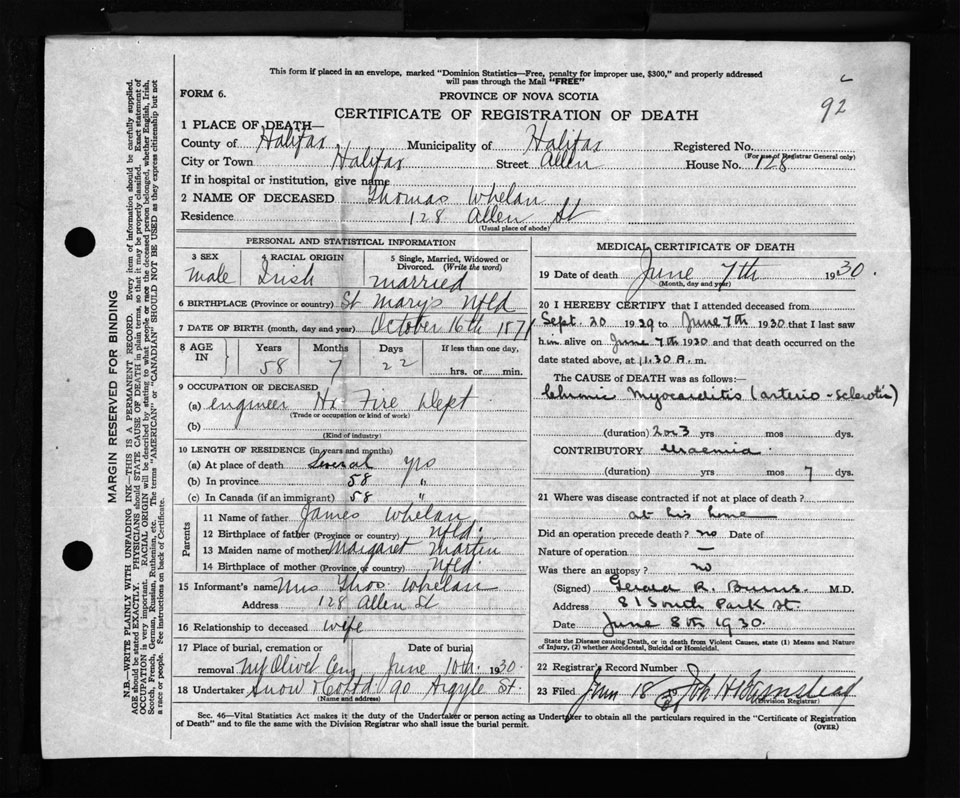 This form if placed in an envelope, marked "Dominion Statistics—Free, penalty for improper use, $300," and properly addressed
will pass through the Mail "FREE"
92
FORM 6.
PROVINCE OF NOVA SCOTIA
CERTIFICATE OF REGISTRATION OF DEATH
1 PLACE OF DEATH—
County of Halifax Municipality of Halifax Registered No.
(For use of Registrar General only)
City or Town Halifax Street Allen House No. 128
If in hospital or institution, give name
2 NAME OF DECEASED Thomas Whelan
Residence 128 Allen St
(Usual place of abode)
MARGIN RESERVED FOR BINDING
N.B.—WRITE PLAINLY WITH UNFADING INK—THIS IS A PERMANENT RECORD. Every item of information should be carefully supplied.
AGE should be stated EXACTLY. PHYSICIANS should STATE CAUSE OF DEATH in plain terms, so that it may be properly classified. Exact statement of
OCCUPATION is very important. RACIAL ORIGIN will be described by stating to what people or race the deceased person belonged, whether English, Irish,
Scotch, French, German, Russian, Ruthenian, etc. The terms "AMERICAN" or "CANADIAN" SHOULD NOT BE USED as they express citizenship but not
a race or people. See instructions on back of Certificate.
PERSONAL AND STATISTICAL INFORMATION
3 SEX
male
4 RACIAL ORIGIN
Irish
5 Single, Married, Widowed or
Divorced. (Write the word)
married
6 BIRTHPLACE (Province or country) St Marys Nfld
7 DATE OF BIRTH (month, day and year) October 16th 1871
8 AGE
IN
Years Months Days If less than one day,
58 7 22 hrs. or min.
9 OCCUPATION OF DECEASED
(a) engineer Hx Fire Dept
(Trade or occupation or kind of work)
(b)
(Kind of industry)
10 LENGTH OF RESIDENCE (in years and months)
(a) At place of death several yrs
(b) In province 58 "
(c) In Canada (if an immigrant) 58 "
Parents
11 Name of father James Whelan
12 Birthplace of father (Province or country) Nfld.
13 Maiden name of mother Margaret Martin
14 Birthplace of mother (Province or country) Nfld.
15 Informant's name Mrs Thos Whelan
Address 128 Allen St
16 Relationship to deceased wife
17 Place of burial, cremation or Date of burial
removal Mt Olivet Cem June 10th 1930
18 Undertaker Snow & Co Ltd 90 Argyle St.
(Name and address)
MEDICAL CERTIFICATE OF DEATH
19 Date of death June 7th 1930.
(Month, day and year)
20 I HEREBY CERTIFY that I attended deceased from
Sept. 20 1929 to June 7th 1930 that I last saw
him alive on June 7th 1930 and that death occurred on the
date stated above, at 11.30 A. m.
The CAUSE of DEATH was as follows:
Chronic Myocarditis (arterio-sclerotic)
(duration) 2 or 3 yrs mos dys.
CONTRIBUTORY Uraemia.
(duration) yrs mos 7 dys.
21 Where was disease contracted if not at place of death?
at his home
Did an operation precede death? no Date of
Nature of operation —
Was there an autopsy? no
(Signed) Gerald R. Burns M.D.
Address 81 South Park St
Date June 8th 1930.
State the Disease causing Death, or in death from Violent Causes, state (1) Means and Nature
of Injury, (2) whether Accidental, Suicidal or Homicidal.
22 Registrar's Record Number
23 Filed June 18
(Division Registrar)
Sec. 46—Vital Statistics Act makes it the duty of the Undertaker or person acting as Undertaker to obtain all the particulars required in the "Certificate of Registration
of Death" and to file the same with the Division Registrar who shall issue the burial permit.
(OVER)